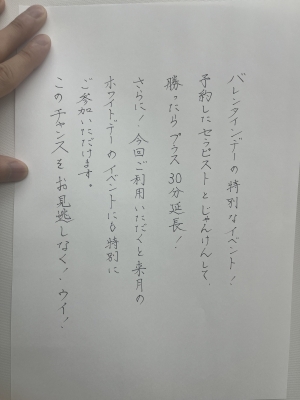 バレンタインデーの特別なイベント！
予約したセラピストとじゃんけんして、
勝ったらプラス30分延長！
さらに！今回ご利用いただくと来月の
ホワイトデーのイベントにも特別に
ご参加いただけます。
このチャンスをお見逃しなく！ウイ！